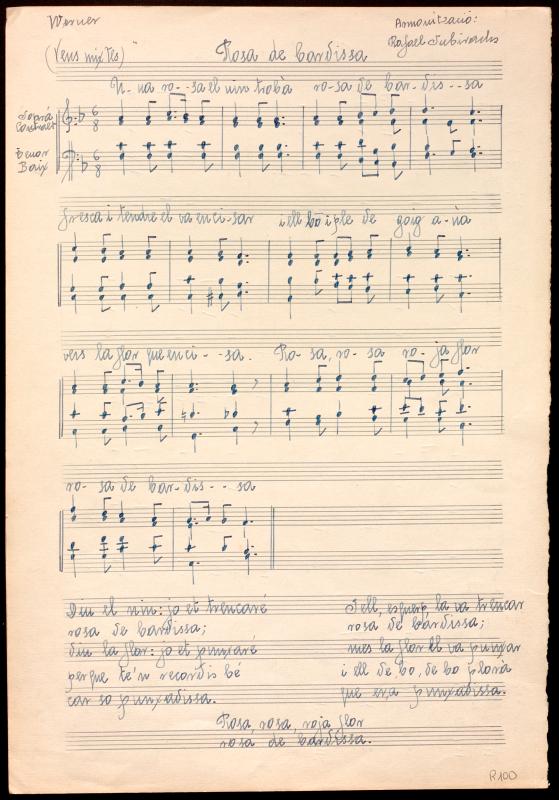 Werner
Armonització:
Rafael Subirachs
(Veus mixtes)
Rosa de bardissa
U-na ro--sa el nin trobà ro-sa de bar-dis--sa
Soprà
Contralt
6
8
Tenor
Baix
6
8
fresca i tendre el va enci-sar i ell bo i ple de goig a-nà
vers la flor que enci--sa. Ro-sa, ro-sa ro-ja flor
ro-sa de bar-dis--sa
Diu el nin: jo et trencaré
rosa de bardissa;
diu la flor: jo et punxaré
perque te'n recordis bé
car so punxadissa.
I ell, esquerp, la va trencar
rosa de bardissa;
mes la flor el va punxar
i ell de bo, de bo plorà
que era punxadissa.
Rosa, rosa, roja flor
rosa de bardissa.
R100